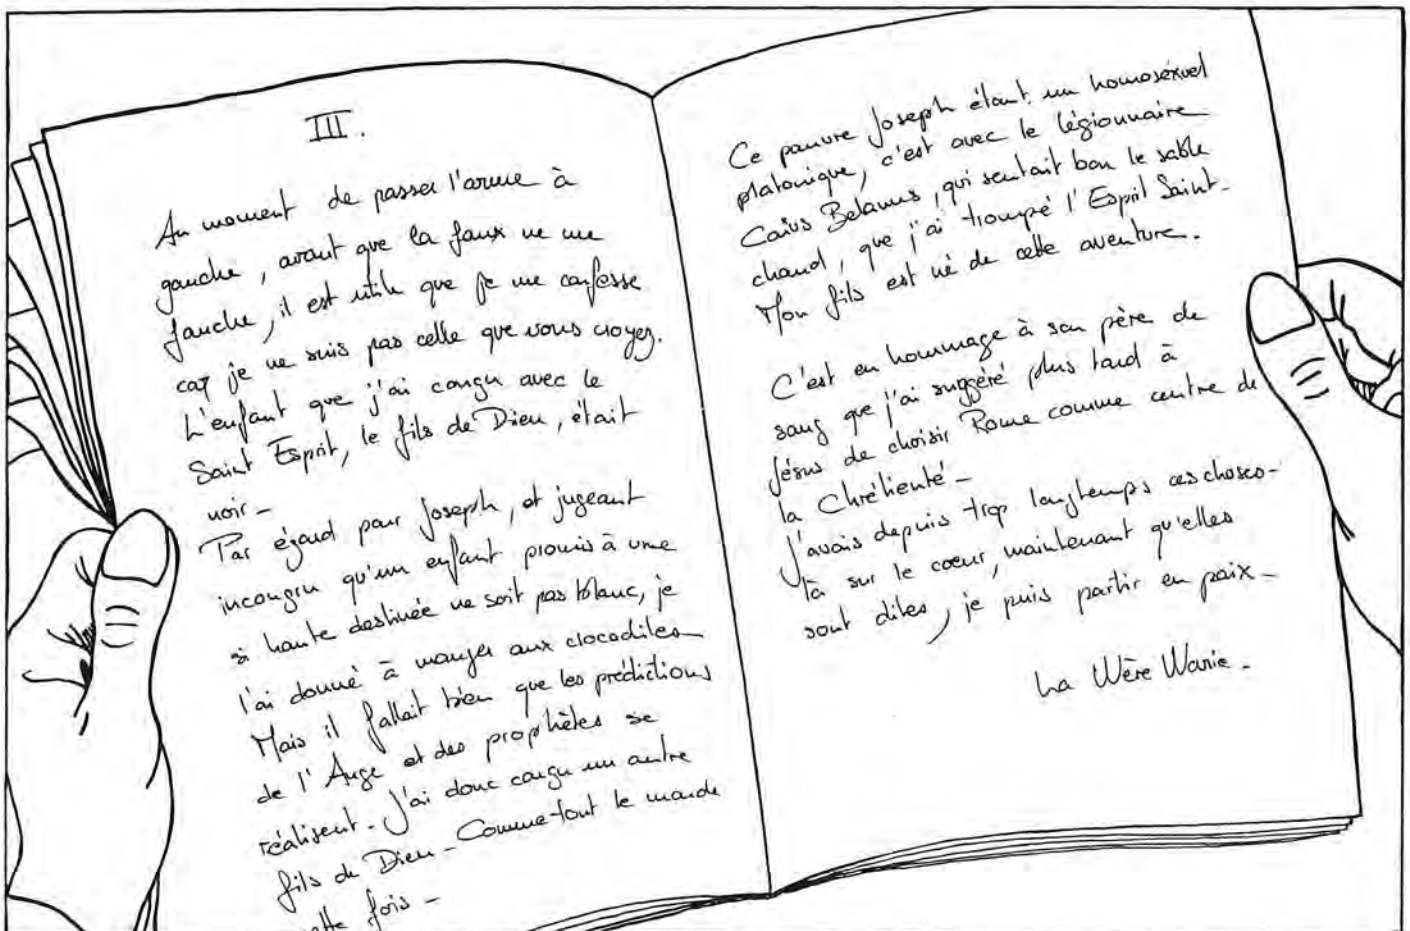 III.
Au moment de passer l'arme à
gauche, avant que la faux ne me
fauche, il est utile que je me confesse
car je ne suis pas celle que vous croyez.
L'enfant que j'ai conçu avec le
Saint Esprit, le fils de Dieu, était
noir -
Par égard pour Joseph, et jugeant
incongru qu'un enfant promis à une
si haute destinée ne soit pas blanc, je
l'ai donné à manger aux crocodiles
Mais il fallait bien que les prédictions
de l'Ange et des prophètes se
réalisent - J'ai donc conçu un autre
fils de Dieu - Comme tout le monde
cette fois -
Ce pauvre Joseph étant un homosexuel
platonique, c'est avec le légionnaire
Caïus Belamus, qui sentait bon le sable
chaud, que j'ai trompé l'Esprit Saint -
Mon fils est né de cette aventure.
C'est en hommage à son père de
sang que j'ai suggéré plus tard à
Jésus de choisir Rome comme centre de
la Chrétienté -
J'avais depuis trop longtemps ces choses-
là sur le coeur, maintenant qu'elles
sont dites, je puis partir en paix -
La Mère Marie -